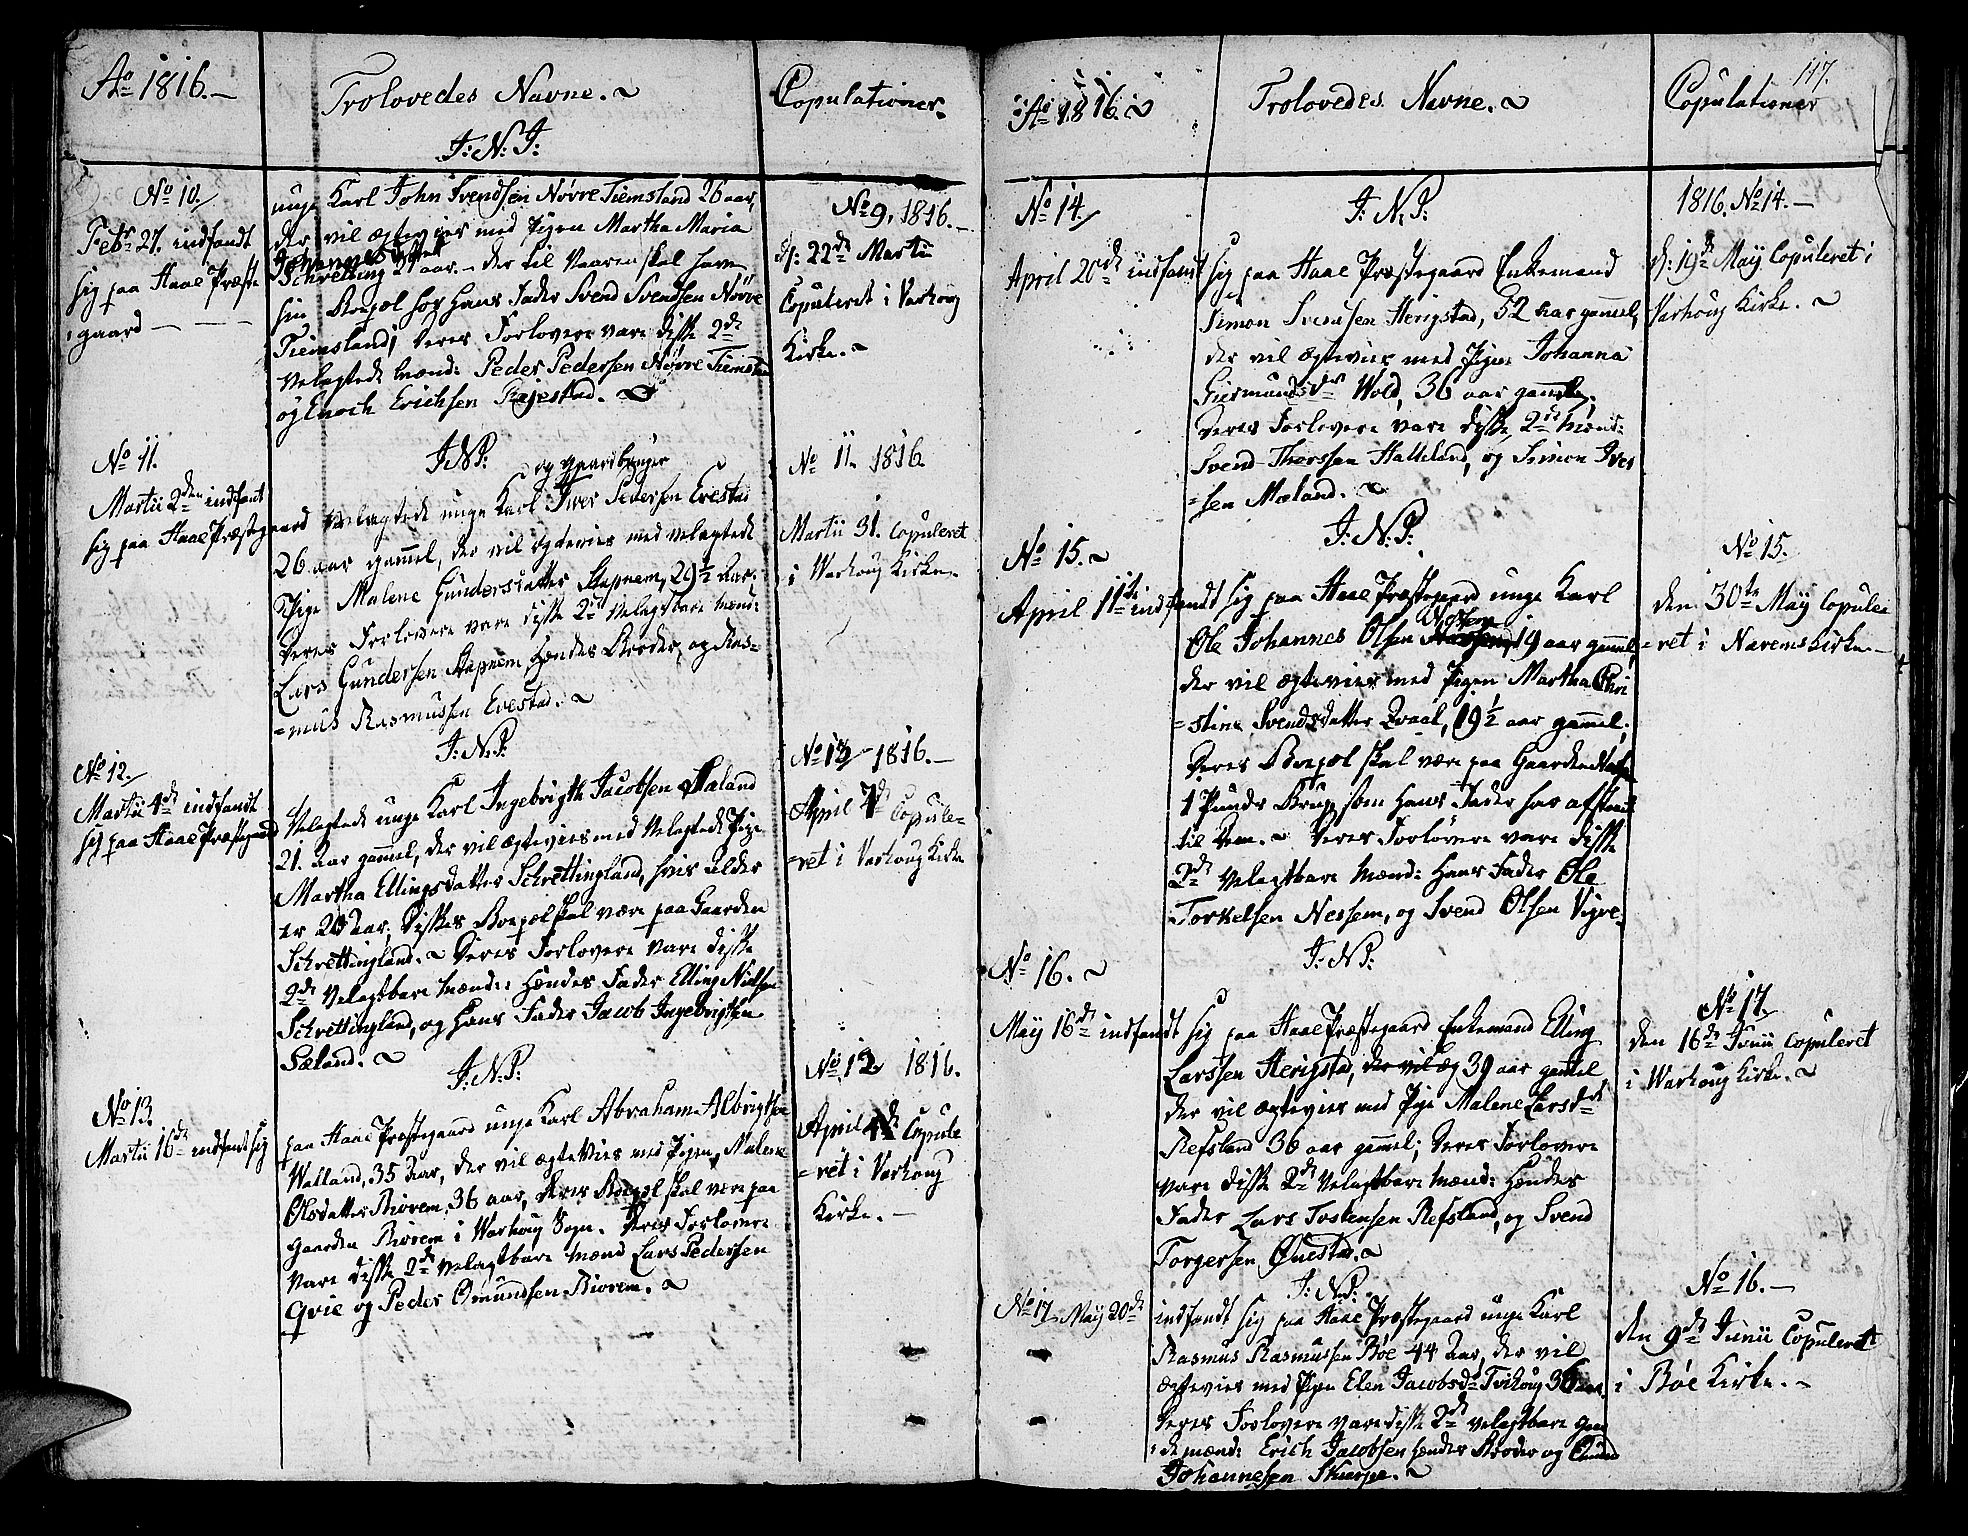 Ao 1816.
Trolovedes Navne.
Copulationer.
J: N: J:
No 10.
Febr 27. indfandt
sig paa Haae Præste
gaard
unge Karl John Svendsen Nørre Tiemsland 26 aar,
der vil ægtevies med Pigen Martha Maria
Schretting 21 aar. - der til Vaaren skal have
sin Boepæl hos Hans Fader Svend Svendsen Nørre
Tiemsland; deres Forlovere vare disse 2de
Velagtede Mænd: Peder Pedersen Nørre Tiemsland
og Enoch Erichsen
No 9, 1816.
d: 22de Martii
Copuleret i Varhoug
Kirke.
No 11.
Martii 2den indfant
sig paa Haae Præstegaard
J. N. J:
og Gaardbruger
Velagtede unge Karl Iver Pedersen Evestad
26 aar gammel, der vil ægtevies med Velagtede
Pige Malene Gundersdatter Stapnem, 29½ Aar.
Deres Forlovere vare disse 2de Velagtbare Mænd:
Lars Gundersen Stapnem, Hendes Broder, og Ras=
=mus Rasmussen Evestad.
No 11. 1816.
Martii 31. Copuleret
i Warhoug Kirke.
No 12.
Martii 4de indfandt
sig paa Haae Præstegaard
J: N. J:
Velagtede unge Karl Ingebrigth Jacobsen Sæland
21. Aar gammel, der vil ægtevies med Velagtede Pige
Martha Ellingsdatter Schrettingland, hvis Alder
er 20 Aar; Disses Boepæl skal være paa Gaarden
Schrettingland. Deres Forlovere vare disse
2de Velagtbare Mænd: Hendes Fader Elling Nielsen
Schrettingland, og Hans Fader Jacob Ingebrigtsen
Sæland.
No 13 1816.
April Copule=
=ret i Varhoug Kirke
No 13.
Martii 16de indfandt sig
J. N. J:
paa Haae Præstegaard unge Karl Abraham Albrigtsen
Watland, 35 Aar, der vil ægtevies med Pigen, Malene
Olsdatter Biorem, 36 aar, deres Boepæl skal være paa
Gaarden Biorem i Warhoug Sogn. Deres Forlovere
vare disse 2de Velagtbare Mænd Lars Pedersen
Qvie og Peder Omundsen Biorem.
No 12 1816.
April Copule
=ret i Varhoug
Kirke.
147.
Ao 1816.
Trolovedes Navne.
Copulationer
No 14.
April 20de indfandt
J. N. J:
sig paa Haae Præstegaard Enkemand
Simon Svendsen Herigstad, 52 Aar gammel,
der vil ægtevies med Pigen Johanna
Giermundsdr Wold, 36 aar gammel.
Deres Forlovere vare disse 2de Mænd:
Svend Thorssen Hatteland, og Simon Iver
=sen Mæland.
1816. No 14.
d: 19de May Copuleret i
Varhoug Kirke.
No 15.
April 11te indfandt
J: N. J:
sig paa Haae Præstegaard unge Karl
Ole Johannes Olsen 19 aar gammel,
der vil ægtevies med Pigen Martha Chri
=stine Svendsdatter 19½ aar gammel;
Deres Boepæl skal være paa Gaarden
1 Punds Brug, som Hans Fader har afstaaet
til Dem. Deres Forlovere vare disse
2de Velagtbare Mænd: Hans Fader Ole
Torkelsen Nessem, og Svend Olsen Vigre.
No 15.
den 30te May Copule
=ret i Narems Kirke.
No 16.
May 16de indfandt
J: N. J:
sig paa Haae Præstegaard Enkemand Elling
Larssen Herigstad, der vil æg 39 aar gammel
der vil ægtevies med Pige Malene Larsdr
Refsland 36 aar gammel; deres Forlovere
vare disse 2de Velagtbare Mænd: Hendes
Fader Lars Tostensen Refsland, og Svend
Torgersen Øuestad.
No 17.
den 16de Junii Copuleret
i Warhoug Kirke.
No 17 May 20de
J. N. J.
indfandt sig paa Haae Præstegaard unge Karl
Rasmus Rasmussen Boe 44 Aar, der vil
ægtevies med Pigen Elen Jacobsdr Tvihoug 36 aar.
Deres Forlovere vare disse 2de Velagtbare Gaar
=demænd: Erich Jacobsen Hendes Broder og
Johannesen Skurpe.
No 16.
den 9de Junii Copuleret
i Bøe Kirke.